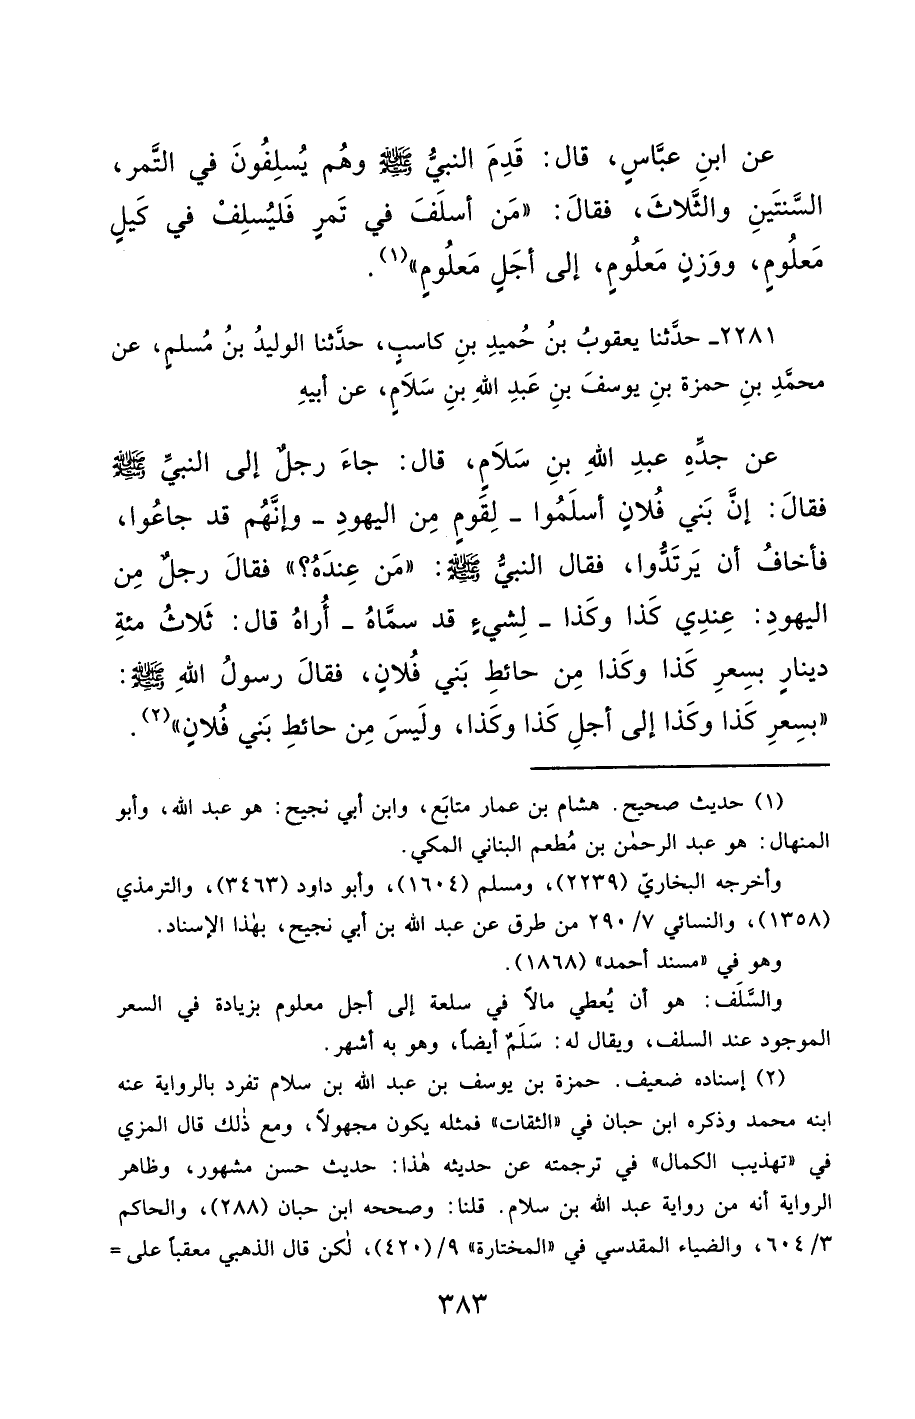 عن ابنِ عبَّاسٍ، قال: قَدِمَ النبيُّ ﷺ وهُم يُسلِفُونَ في التَّمر،
السَّنتَينِ والثَّلاثَ، فقالَ: «مَن أسلَفَ في تَمرٍ فَليُسلِفْ في كَيلٍ
مَعلُومٍ، ووَزنٍ مَعلُومٍ، إلى أجَلٍ مَعلُومٍ»(١).
٢٢٨١ـ حدَّثنا يعقوبُ بنُ حُميدِ بنِ كاسبٍ، حدَّثنا الوليدُ بنُ مُسلمٍ، عن
محمَّدِ بنِ حمزة بنِ يوسفَ بنِ عَبدِ اللهِ بنِ سَلَامٍ، عن أبيهِ
عن جدِّهِ عبدِ اللهِ بنِ سَلَامٍ، قال: جاءَ رجلٌ إلى النبيِّ ﷺ
فقالَ: إنَّ بَني فُلانٍ أسلَمُوا ـ لِقَومٍ مِن اليهودِ ـ وإنَّهُم قد جاعُوا،
فأخافُ أن يَرتَدُّوا، فقال النبيُّ ﷺ: «مَن عِندَهُ؟» فقالَ رجلٌ مِن
اليهودِ: عِندِي كَذا وكَذا ـ لِشيءٍ قد سمَّاهُ ـ أُراهُ قال: ثَلاثُ مئةِ
دينارٍ بسِعرِ كَذا وكَذا مِن حائطِ بَني فُلانٍ، فقالَ رسولُ اللهِ ﷺ:
«بسِعرِ كَذا وكَذا إلى أجلِ كَذا وكَذا، ولَيسَ مِن حائطِ بَني فُلانٍ»(٢).
(١) حديث صحيح. هشام بن عمار متابَع، وابن أبي نجيح: هو عبد الله، وأبو
المنهال: هو عبد الرحمٰن بن مُطعم البناني المكي.
وأخرجه البخاريّ (٢٢٣٩)، ومسلم (١٦٠٤)، وأبو داود (٣٤٦٣)، والترمذي
(١٣٥٨)، والنسائي ٧/ ٢٩٠ من طرق عن عبد الله بن أبي نجيح، بهٰذا الإسناد.
وهو في «مسند أحمد» (١٨٦٨).
والسَّلَف: هو أن يُعطي مالاً في سلعة إلى أجل معلوم بزيادة في السعر
الموجود عند السلف، ويقال له: سَلَمٌ أيضاً، وهو به أشهر.
(٢) إسناده ضعيف. حمزة بن يوسف بن عبد الله بن سلام تفرد بالرواية عنه
ابنه محمد وذكره ابن حبان في «الثقات» فمثله يكون مجهولاً، ومع ذٰلك قال المزي
في «تهذيب الكمال» في ترجمته عن حديثه هٰذا: حديث حسن مشهور، وظاهر
الرواية أنه من رواية عبد الله بن سلام. قلنا: وصححه ابن حبان (٢٨٨)، والحاكم
٣/ ٦٠٤، والضياء المقدسي في «المختارة» ٩/ (٤٢٠)، لٰكن قال الذهبي معقباً على =
٣٨٣